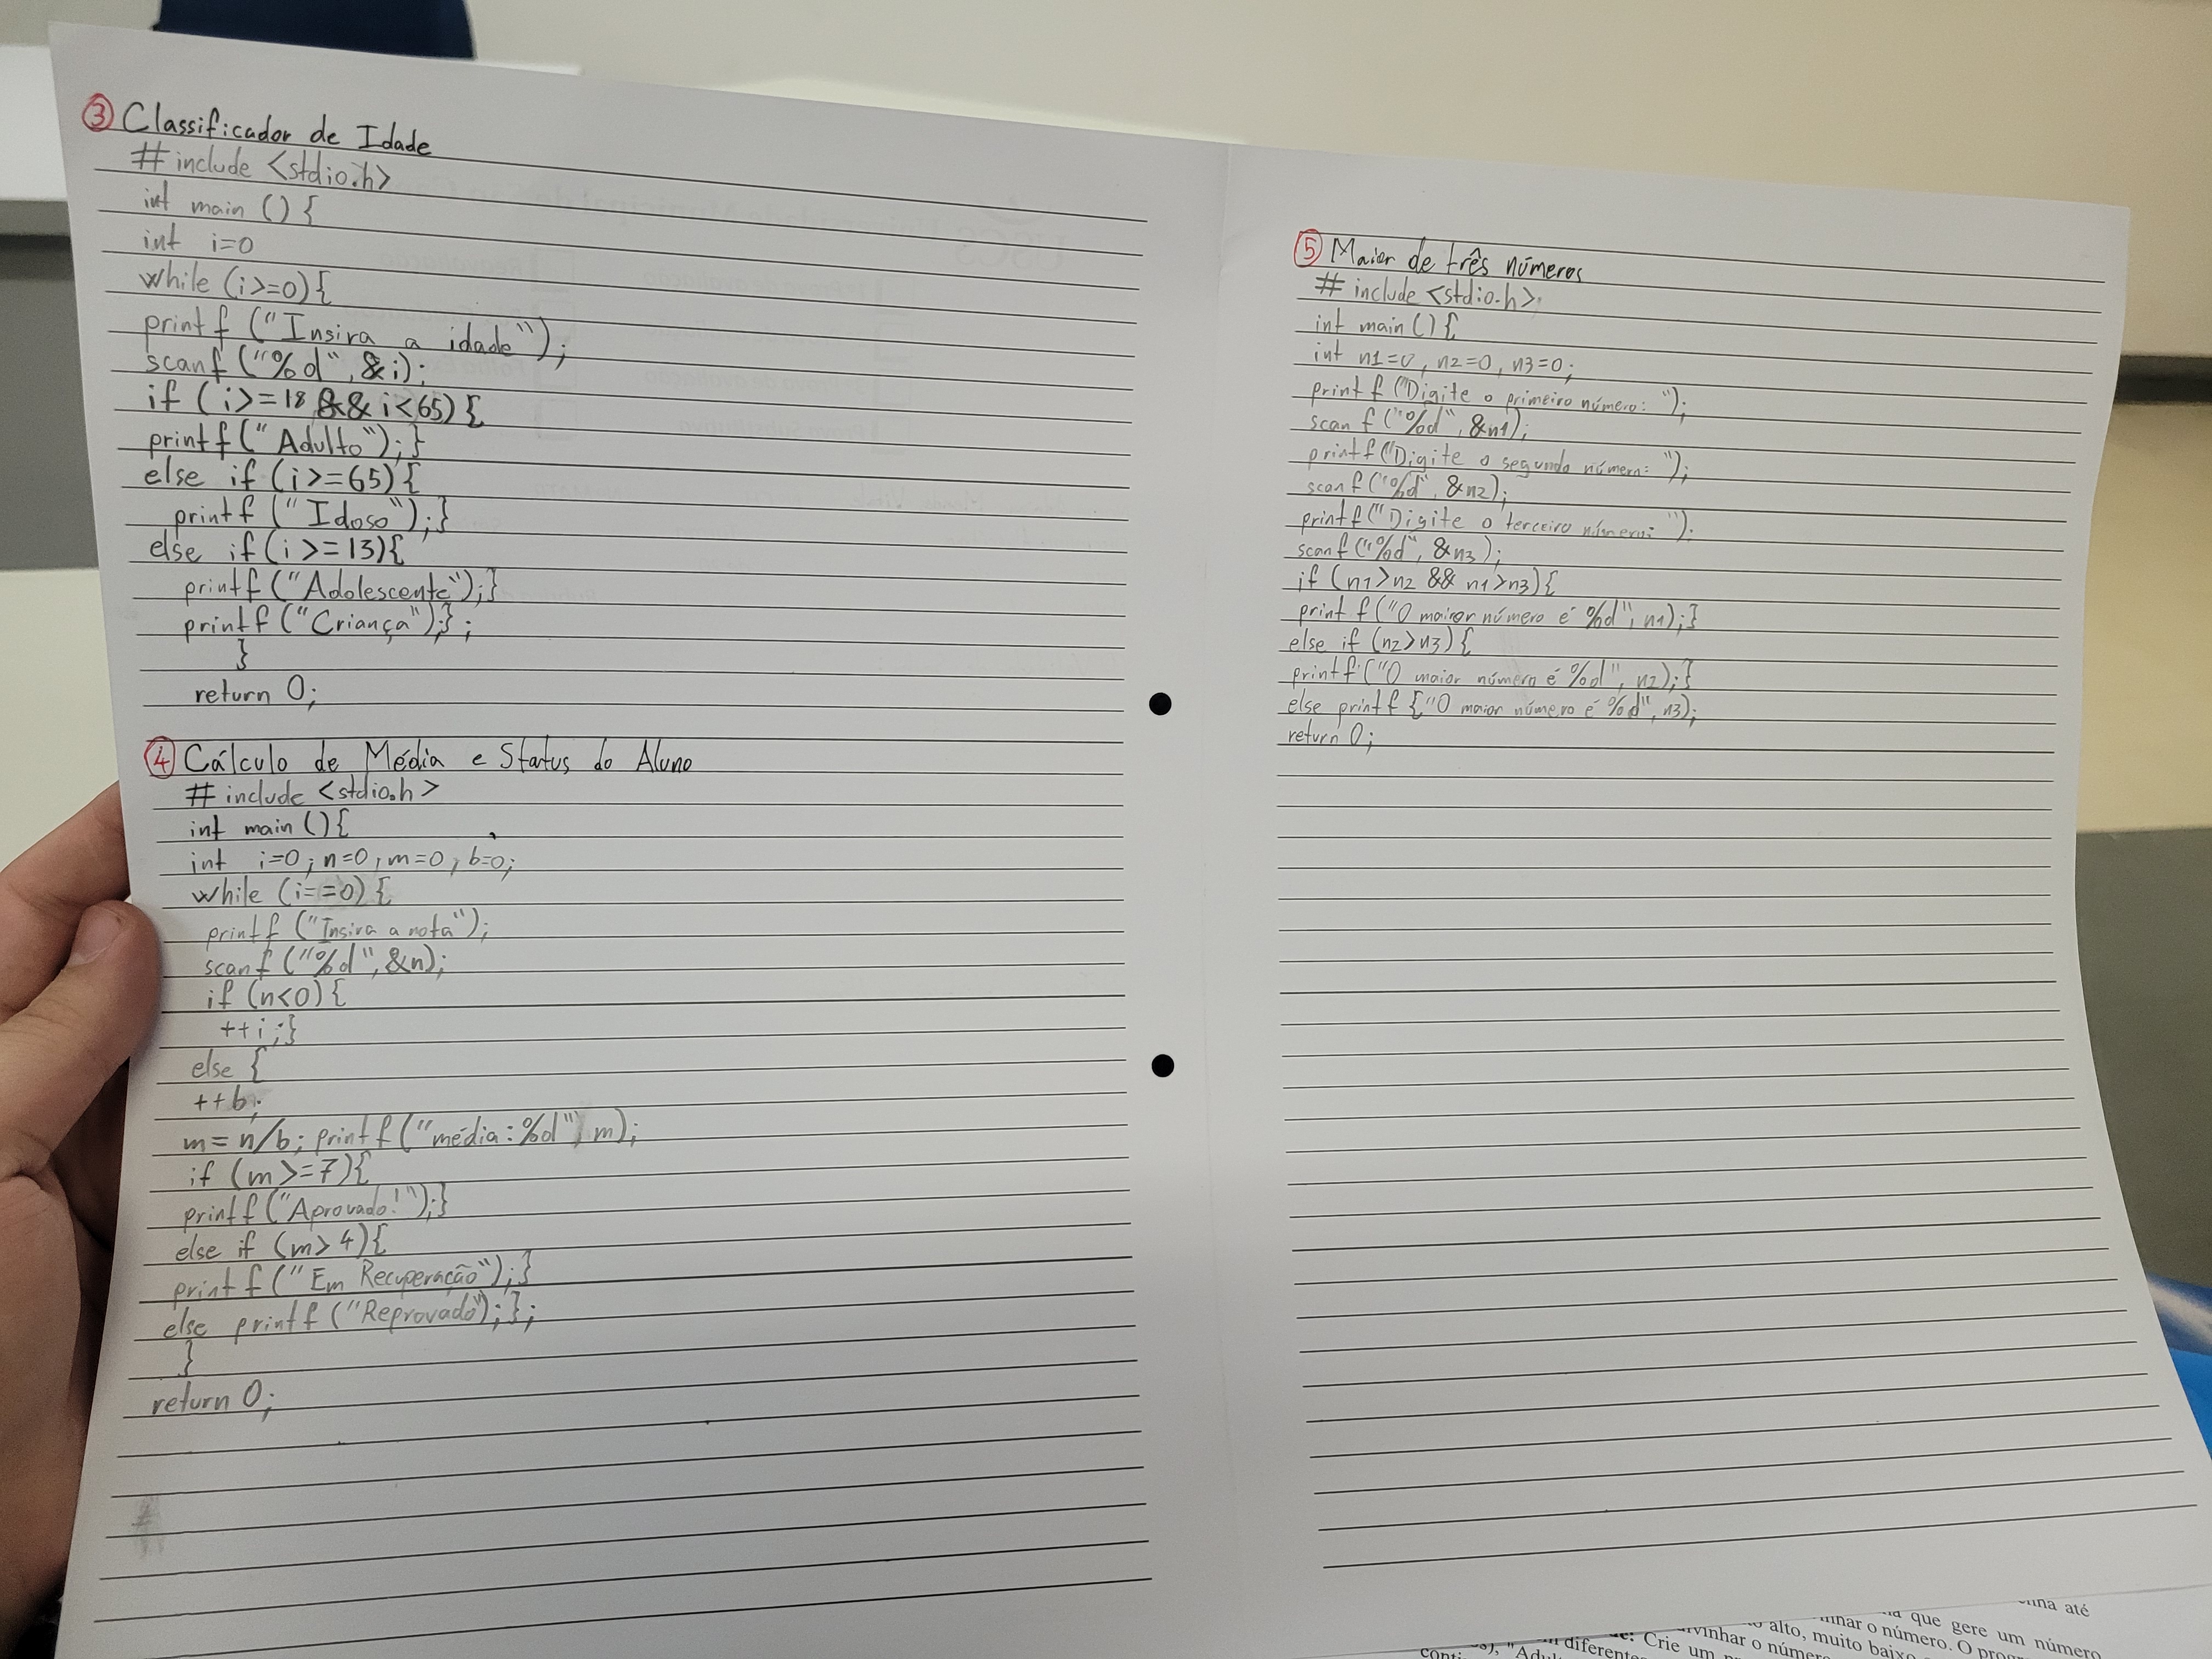 ③ Classificador de Idade
# include <stdio.h>
int main () {
int i=0
while (i>=0){
printf ("Insira a idade");
scanf ("%d", &i);
if (i>=18 && i<65){
printf ("Adulto");}
else if (i>=65){
printf ("Idoso");}
else if (i>=13){
printf ("Adolescente");}
printf ("Criança");};
}
return 0;
④ Cálculo de Média e Status do Aluno
# include <stdio.h>
int main (){
int i=0; n=0, m=0, b=0;
while (i==0){
printf ("Insira a nota");
scanf ("%d", &n);
if (n<0){
++i;}
else {
++b;
m= n/b; printf ("média: %d", m);
if (m>=7){
printf ("Aprovado!");}
else if (m>4){
printf ("Em Recuperação");}
else printf ("Reprovado");};
}
return 0;
⑤ Maior de três números
# include <stdio.h>
int main () {
int n1=0, n2=0, n3=0;
printf ("Digite o primeiro número: ");
scanf ("%d", &n1);
printf ("Digite o segundo número: ");
scanf ("%d", &n2);
printf ("Digite o terceiro número: ");
scanf ("%d", &n3);
if (n1>n2 && n1>n3){
printf ("O maior número é %d", n1);}
else if (n2>n3){
printf ("O maior número é %d", n2);}
else printf {"O maior número é %d", n3);
return 0;
até
que gere um número
alto, muito baixo
Crie um